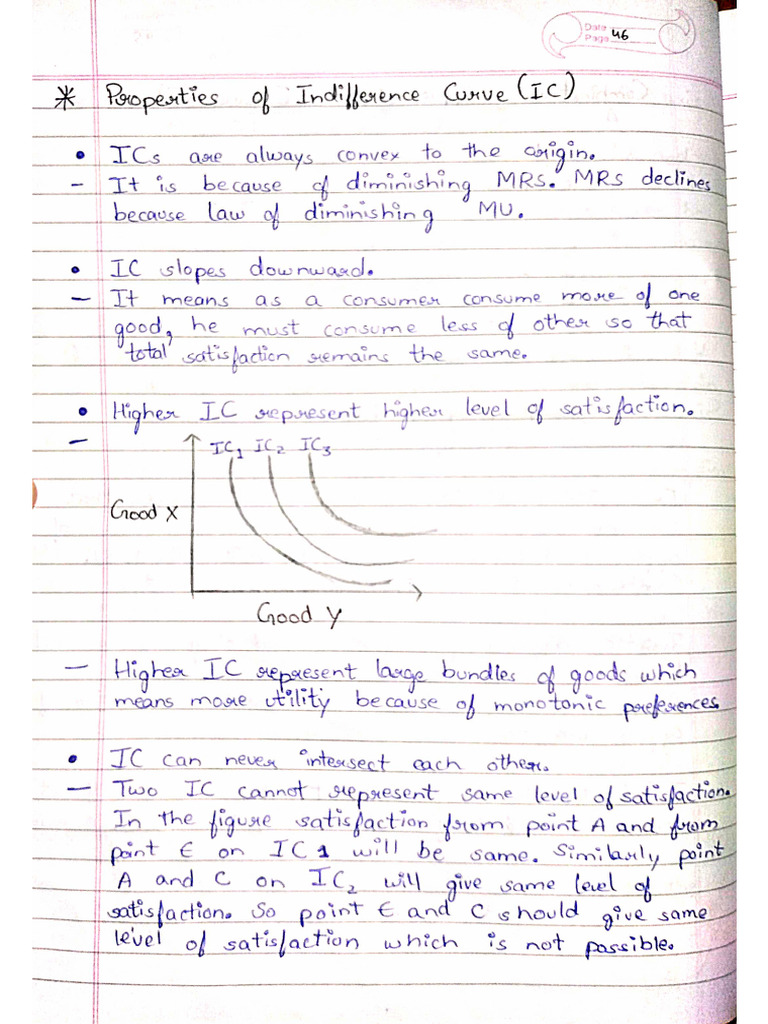 Date
Page 46
* Properties of Indifference Curve (IC)
• ICs are always convex to the origin.
- It is because of diminishing MRS. MRS declines
because law of diminishing MU.
• IC slopes downward.
- It means as a consumer consume more of one
good, he must consume less of other so that
total satisfaction remains the same.
• Higher IC represent higher level of satisfaction.
-
IC1 IC2 IC3
Good X
Good Y
- Higher IC represent large bundles of goods which
means more utility because of monotonic preferences.
• IC can never intersect each other.
- Two IC cannot represent same level of satisfaction.
In the figure satisfaction from point A and from
point E on IC1 will be same. Similarly point
A and C on IC2 will give same level of
satisfaction. So point E and C should give same
level of satisfaction which is not possible.